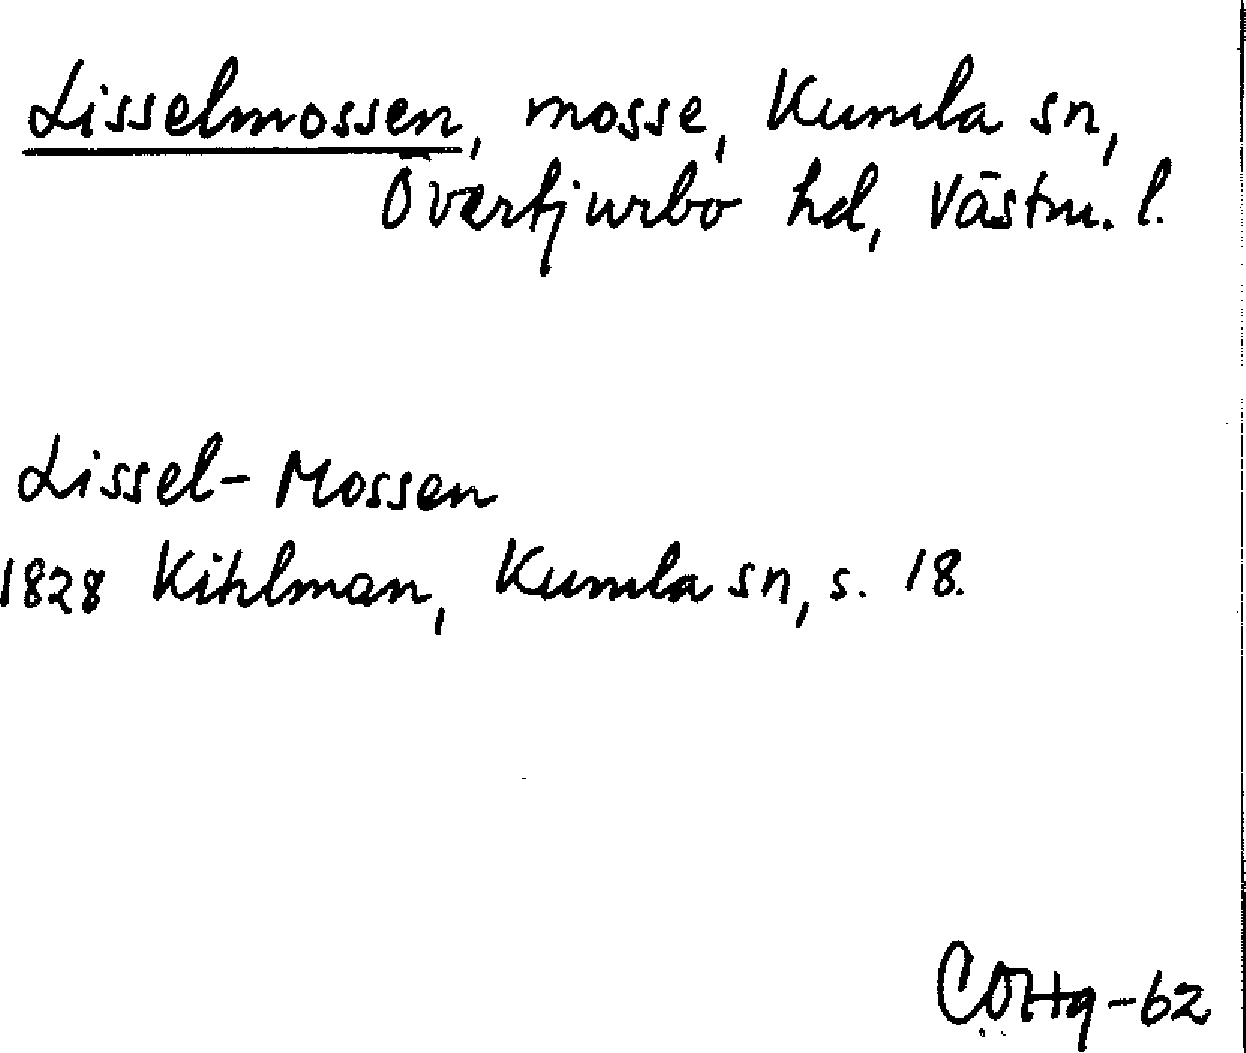 Lisselmossen, mosse, Kumla sn,
Övertjurbo hd, Västm. l.
Lissel-Mossen
1828 Kihlman, Kumla sn, s. 18.
-62